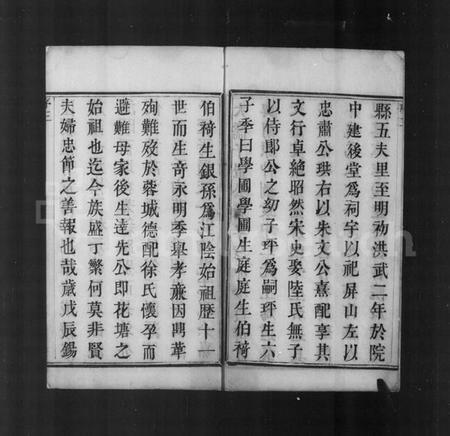 縣五夫里至明初洪武二年於院
中建後堂為祠宇以祀屏山左以
忠肅公珙右以朱文公熹配享其
文行卓絶昭然宋史娶陸氏無子
以侍郎公之幼子玶為嗣玶生六
子季曰學圃學圃生庭庭生伯猗
伯猗生銀孫為江陰始祖歷十一
世而生竒永明季舉孝亷因閗華
殉難歿於蓉城德配徐氏懷孕而
避難母家後生達先公即花塘之
始祖也迄今族盛丁繁何莫非賢
夫婦忠節之善報也哉歲戊辰錫